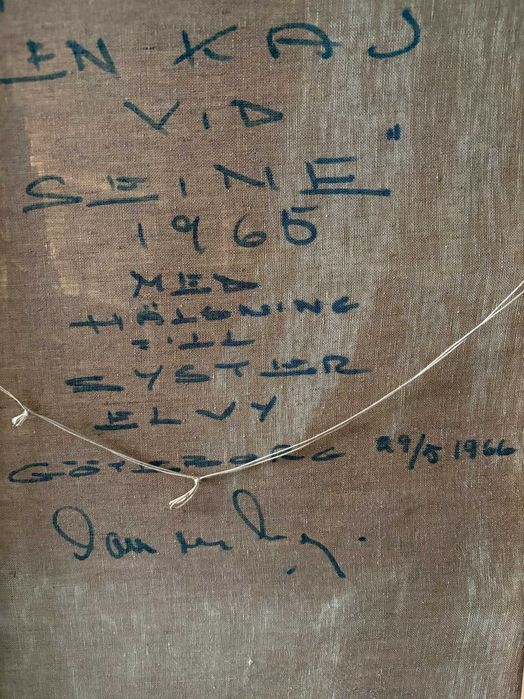 EN KAJ
VID
SEINE"
1965
MED
HÄLSNING
TILL
SYSTER
ELVY
GÖTEBORG 29/5 1966